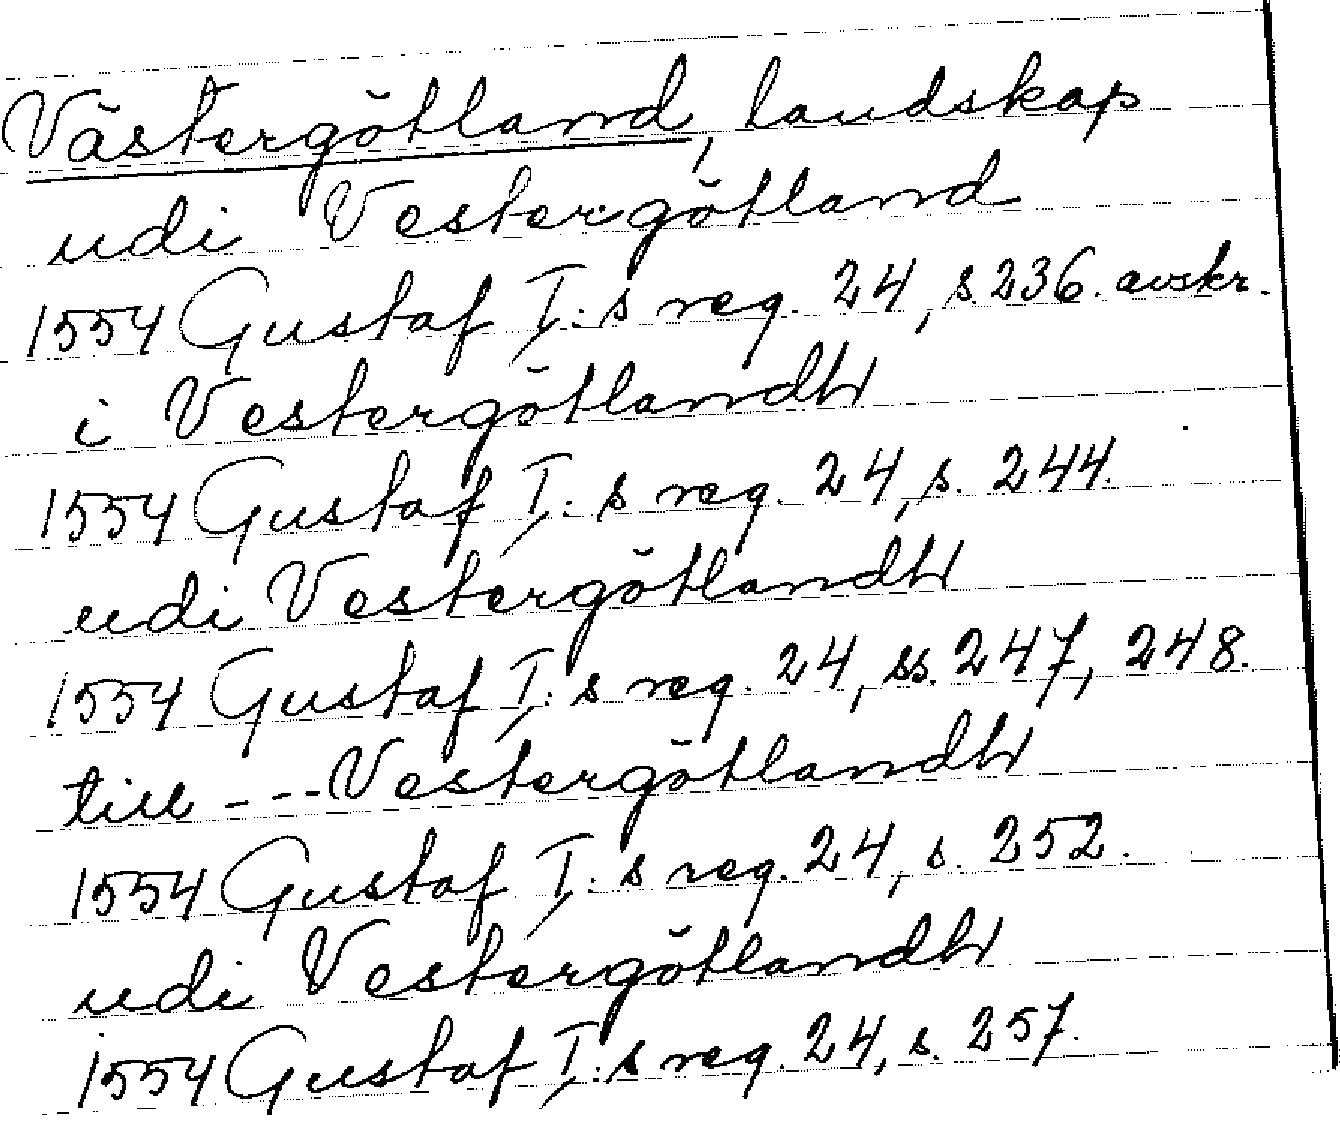 Västergötland, landskap
udi Vestergötland
1554 Gustaf I:s reg. 24, s 236. avskr.
i Vestergötlandh
1554 Gustaf I:s reg. 24, s. 244.
udi Vestergötlandh
1554 Gustaf I:s reg. 24, ss. 247, 248.
till --- Vestergötlandh
1554 Gustaf I:s reg. 24, s. 252.
udi Vestergötlandh
1554 Gustaf I:s reg. 24, s. 257.